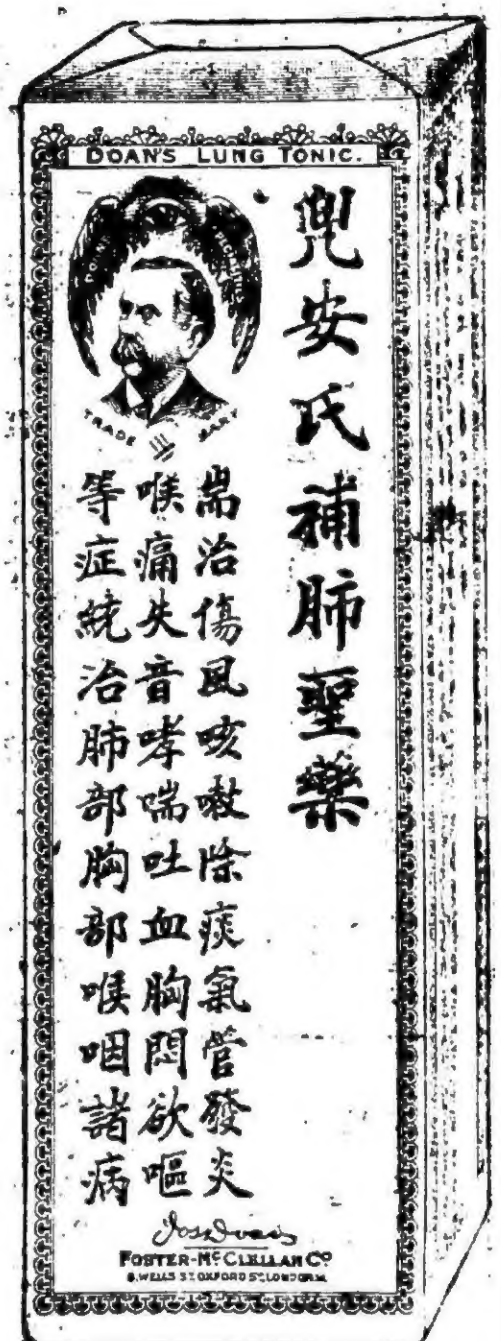 DOAN'S LUNG TONIC.
TRADE MARK
兜安氏補肺聖藥
耑治傷風咳嗽除痰氣管發炎
喉痛失音哮喘吐血胸悶欲嘔
等症統治肺部胸部喉咽諸病
FOSTER-McCLELLAN CO
8, WELLS ST OXFORD ST LONDON